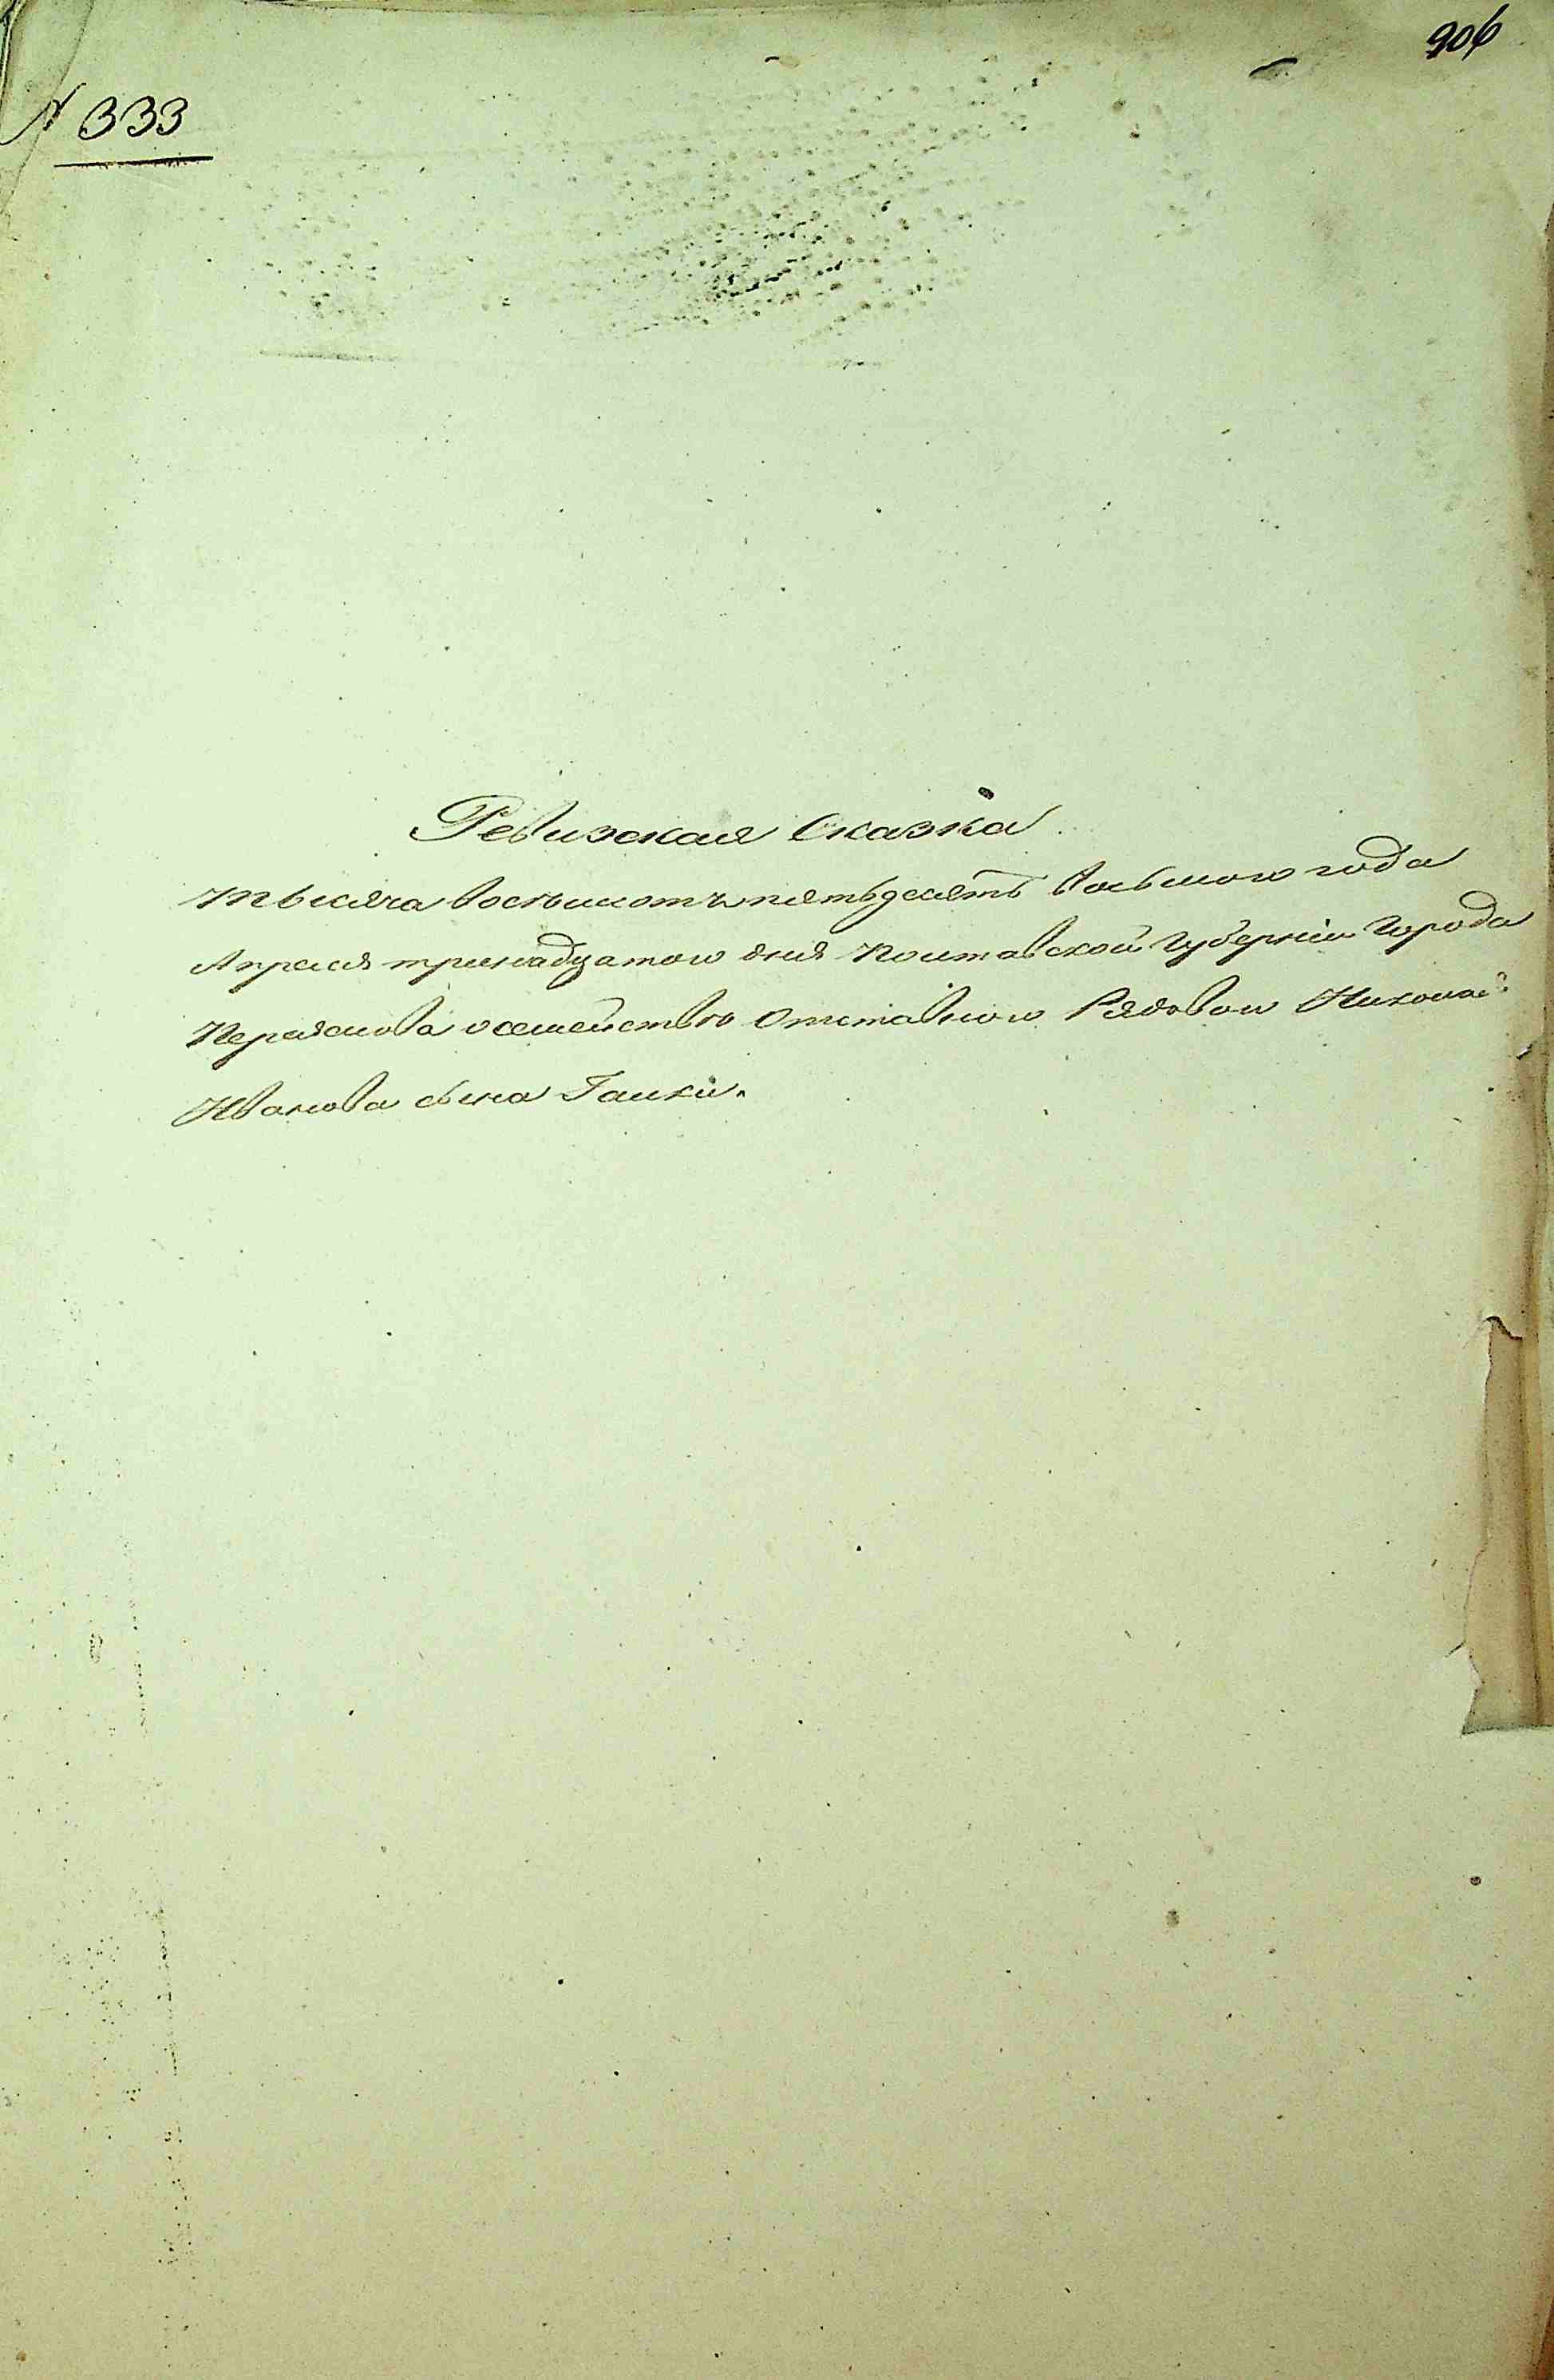 906
N 333
Ревизская Сказка
Тысяча восемьсотъ пятьдесятъ восьмого года
Апреля тринадцатого дня Полтавской Губернiи Города
Переяслова о семействѣ Отставного Рядового Николая
Иванова сына Галки.